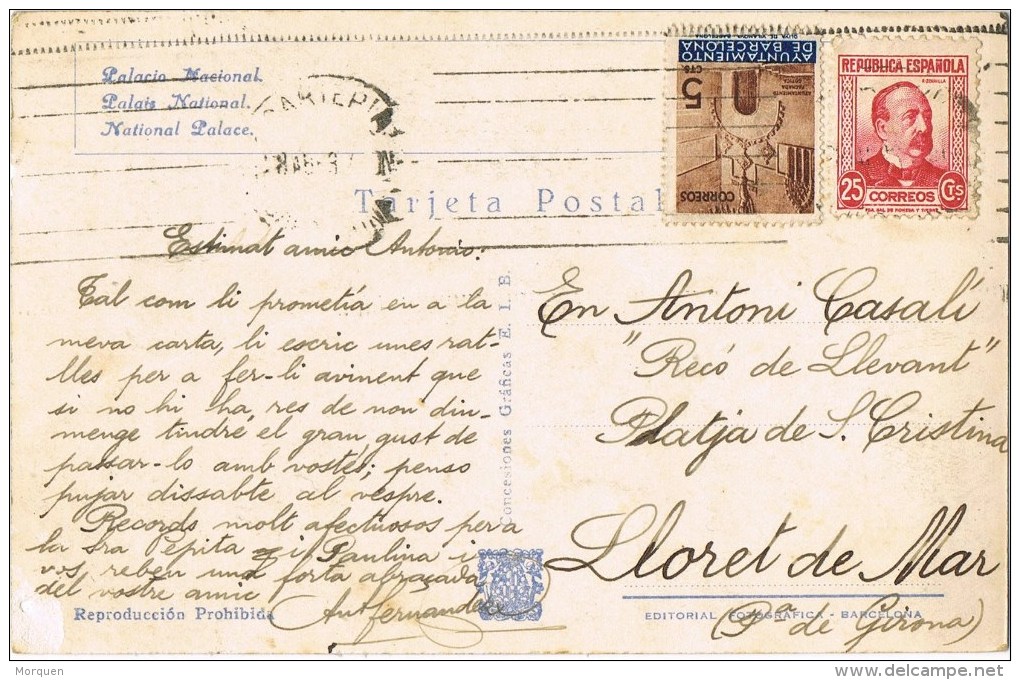 Palacio Nacional.
Palais National.
National Palace.
Tarjeta Postal
AYUNTAMIENTO
DE BARCELONA
5
CTS.
CORREOS
REPUBLICA ESPAÑOLA
25
CORREOS
CTS
Estimat amic Antonio:
Tal com li prometía en a la
meva carta, li escric unes rat-
lles per a fer-li avinent que
si no hi ha res de nou diu-
menge tindré el gran gust de
passar-lo amb vostès; penso
pujar dissabte al vespre.
Records molt afectuosos per a
la sra Pepita i Paulina i
vos reben una forta abraçada
del vostre amic
Ant fernandez
Concesiones Gráficas E. I. B.
En Antoni Casalí
"Recó de Llevant"
Platja de S. Cristina
Lloret de Mar
(Pª. de Girona)
Reproducción Prohibida
EDITORIAL FOTOGRÁFICA - BARCELONA
Morquen
delcampe.net